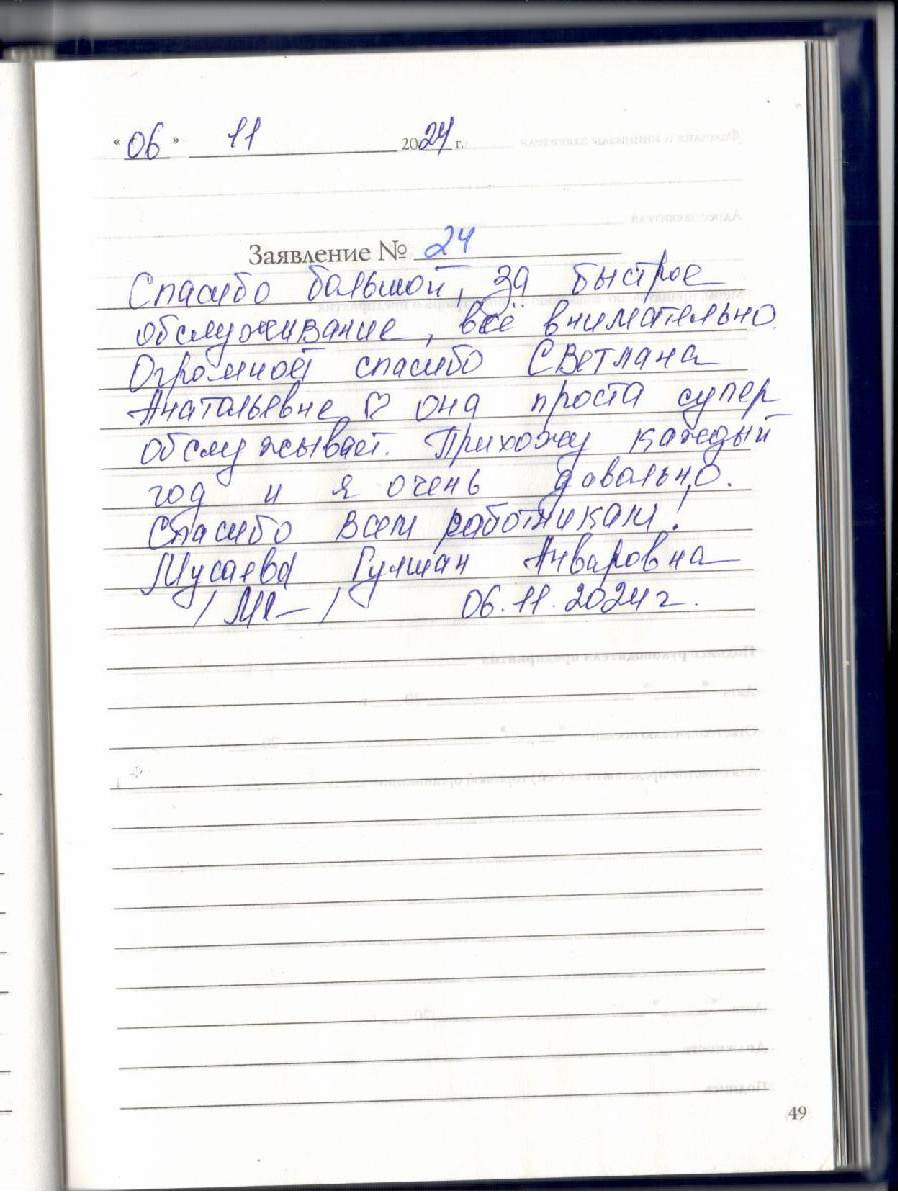 " 06 " 11 2024 г.
Заявление № 24
Спасибо большой, за быстрое
обслуживание, всё внимательно.
Огромноет спасибо Светлана
Анатальевне ♡ она проста супер
обслуживает. Прихожу каждый
год и я очень довально.
Спасибо всем работникам!
Мусаева Гулшан Анваровна
06.11.2024 г.
49